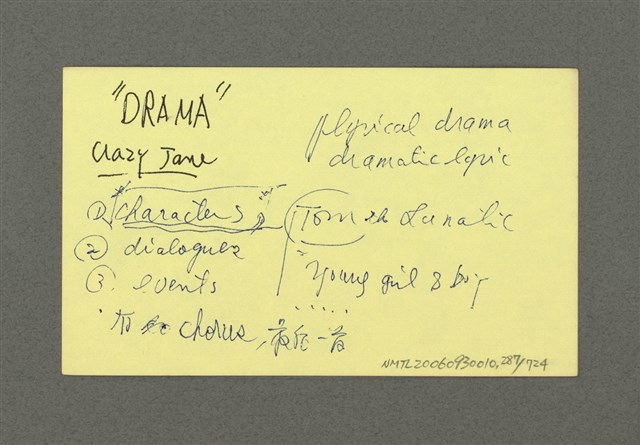 "DRAMA"
Crazy Jane
lyrical drama
dramatic lyric
① characters
② dialogues
③ events
Tom the Lunatic
Young girl & boy
.....
chorus, 最後一首
NMTL20060930010, 287/724